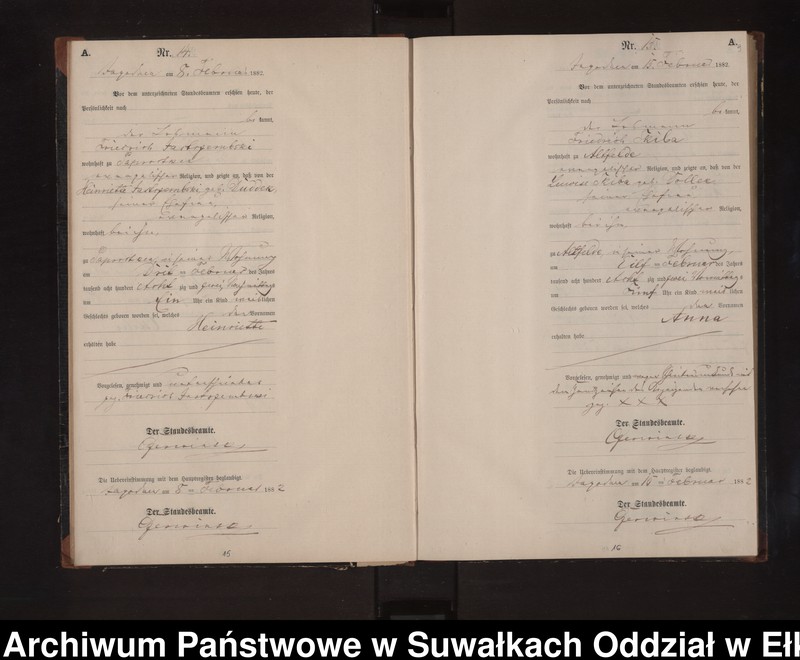 A.
Nr. 14.
am 8. Februar 1882.
Vor dem unterzeichneten Standesbeamten erschien heute, der
Persönlichkeit nach
be kannt,
der
Friedrich
wohnhaft zu
evangelischer Religion, und zeigte an, daß von der
Henriette geb.
seiner Ehefrau
evangelischer Religion,
wohnhaft bei ihm
zu in seiner Wohnung
am Drei ten Februar des Jahres
tausend acht hundert Acht zig und zwei Nachmittags
um Ein Uhr ein Kind weiblichen
Geschlechts geboren worden sei, welches den Vornamen
Heinriette
erhalten habe
Vorgelesen, genehmigt und unterschrieben
gez. Friedrich
Der Standesbeamte.
Die Uebereinstimmung mit dem Hauptregister beglaubigt.
am 8 ten Februar 1882
Der Standesbeamte.
15
A.
Nr. 15.
am 15. Februar 1882.
Vor dem unterzeichneten Standesbeamten erschien heute, der
Persönlichkeit nach
be kannt,
der
Friedrich Skiba
wohnhaft zu Altfelde
evangelischer Religion, und zeigte an, daß von der
Skiba geb.
seiner Ehefrau
evangelischer Religion,
wohnhaft bei ihm
zu Altfelde in seiner Wohnung
am Elf ten Februar des Jahres
tausend acht hundert Acht zig und zwei Vormittags
um Fünf Uhr ein Kind weib lichen
Geschlechts geboren worden sei, welches den Vornamen
Anna
erhalten habe
Vorgelesen, genehmigt und wegen mit
dem Handzeichen des Anzeigenden versehen
gez. X X X
Der Standesbeamte.
Die Uebereinstimmung mit dem Hauptregister beglaubigt.
am 15 ten Februar 1882
Der Standesbeamte.
16
Archiwum Państwowe w Suwałkach Oddział w Ełk